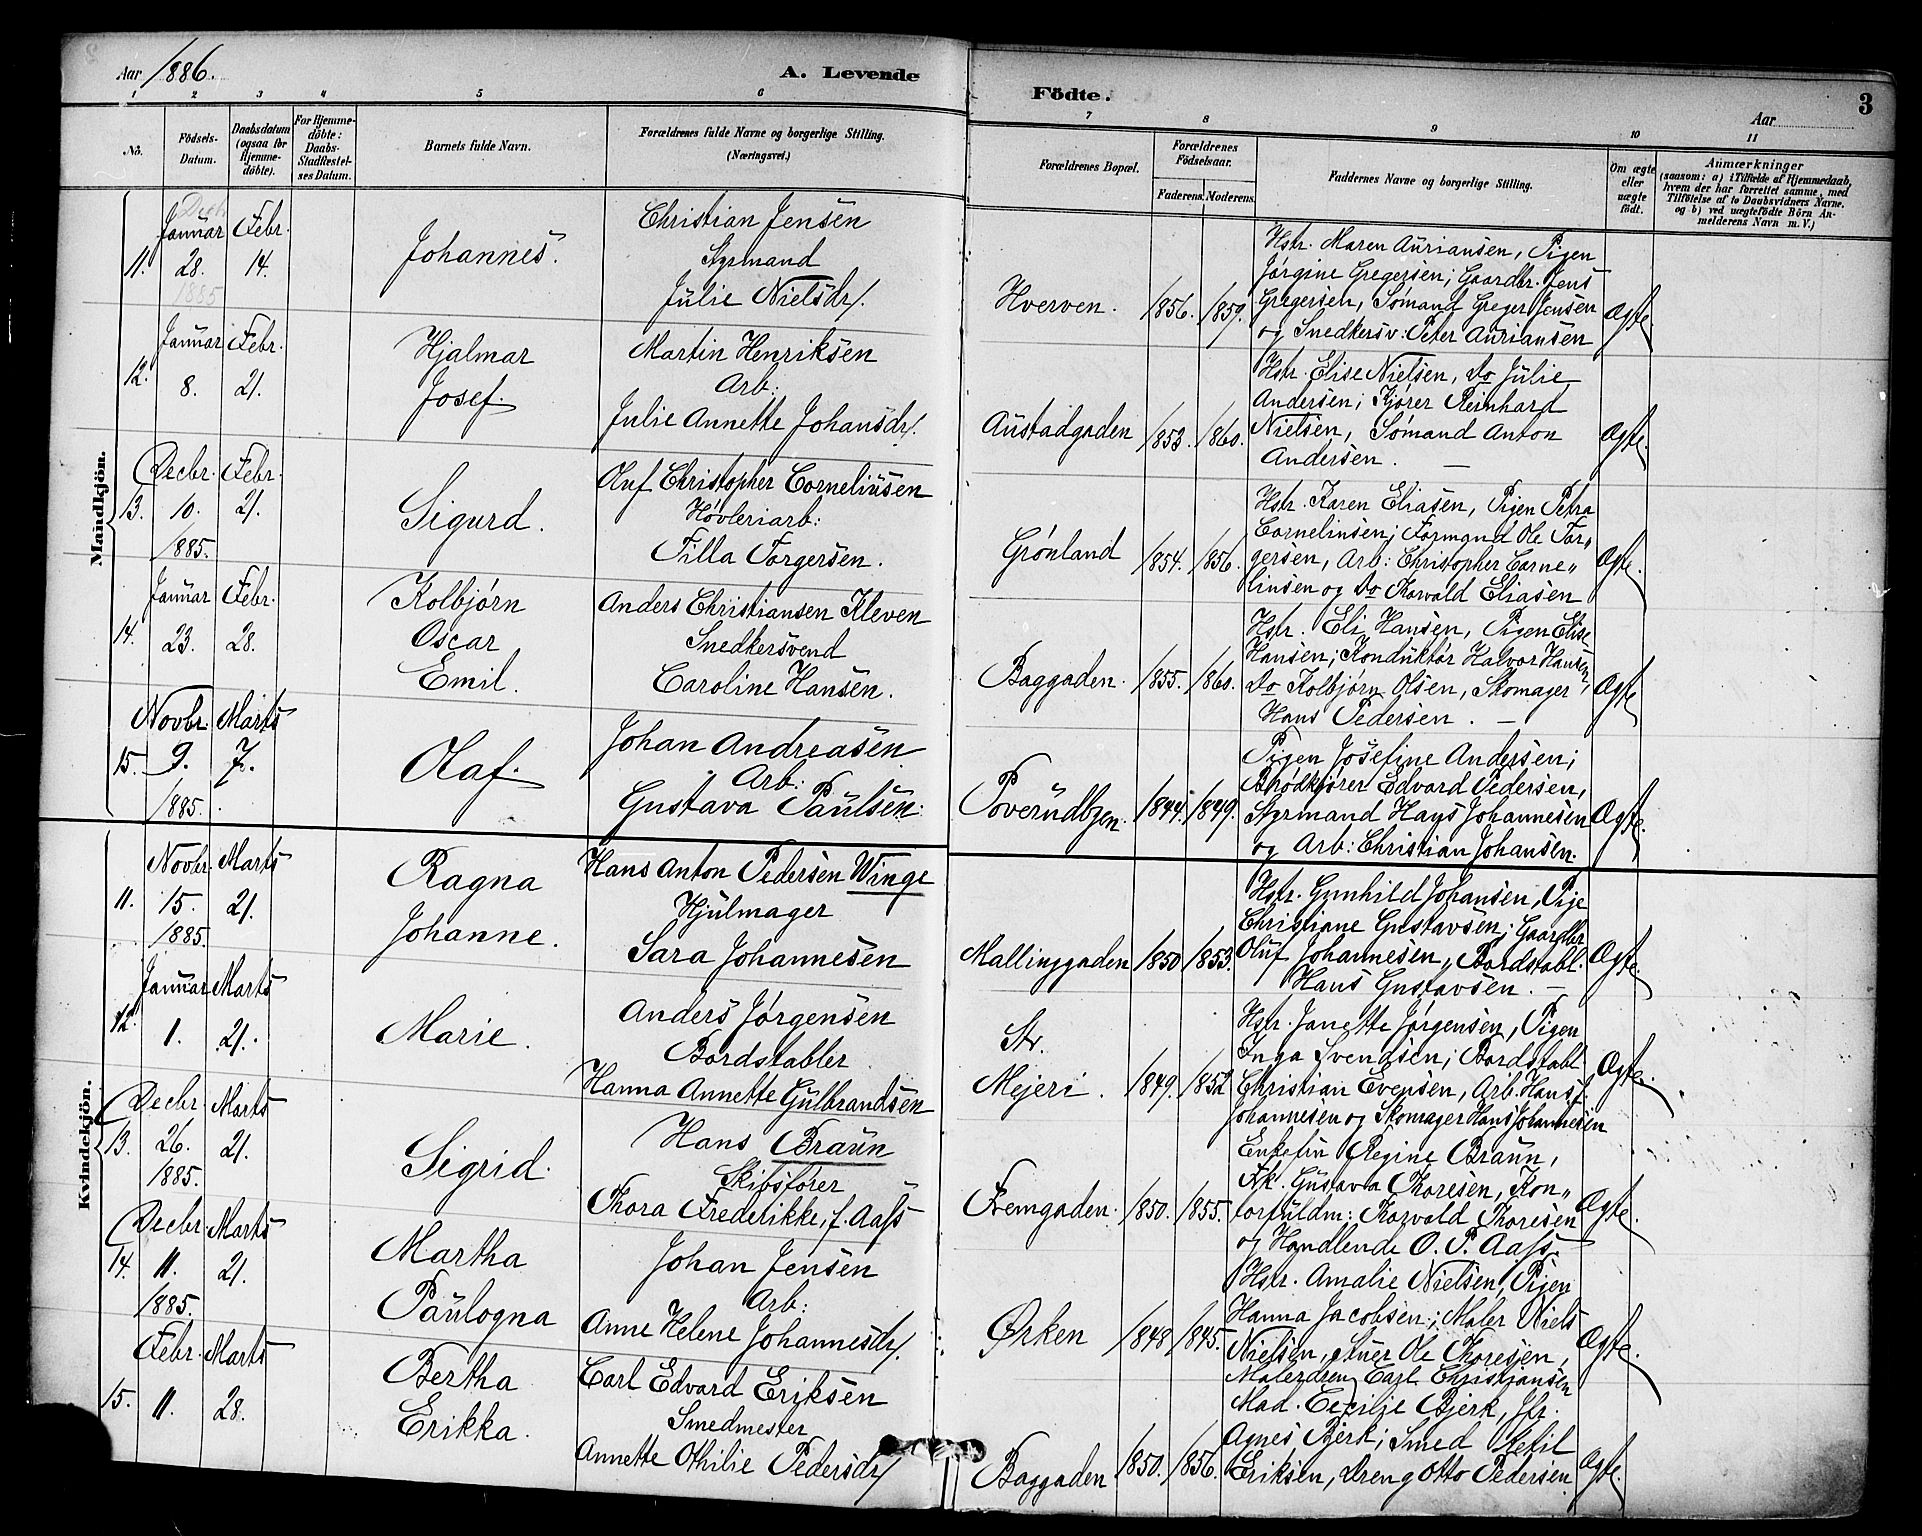 Aar 1886.
A. Levende
Födte.
Aar
3
1 2 3 4 5 6 7 8 9 10 11
No.
Födsels-Datum.
Daabsdatum (ogsaa for Hjemme-döbte).
For Hjemme-döbte: Daabs-Stadfæstel-ses Datum.
Barnets fulde Navn.
Forældrenes fulde Navne og borgerlige Stilling.
(Næringsvei.)
Forældrenes Bopæl.
Forældrenes Födselsaar.
Faderens. Moderens.
Faddernes Navne og borgerlige Stilling.
Om ægte eller uægte födt.
Anmærkninger
(saasom: a) i Tilfælde af Hjemmedaab,
hvem der har forrettet samme, med
Tilföielse af to Daabsvidners Navne.
og b) ved uægtefödte Börn An-
melderens Navn m. V.)
Mandkjön.
11.
Decbr
Januar
28.
1885
Febr.
14.
Johannes.
Christian Jensen
Styrmand
Julie Nielsdr.
Hverven.
1856.
1859.
Hstr. Maren Auriansen, Pigen
Jørgine Gregersen; Gaardbr. Jens
Gregersen, Sømand Greger Jensen
og Snedkersv: Peter Auriansen
Ægte.
12.
Januar
8.
Febr.
21.
Hjalmar
Josef.
Martin Henriksen
Arb:
Julie Annette Johansdr.
Austadgaden
1853.
1860.
Hstr. Elise Nielsen, Do Julie
Andersen; Kjører Reinhard
Nielsen, Sømand Anton
Andersen. —
Ægte.
13.
Decbr.
10.
1885.
Febr.
21.
Sigurd.
Oluf Christopher Corneliusen
Høvleriarb:
Tilla Torgersen.
Grønland
1854.
1856.
Hstr. Karen Eliasen, Pigen Petra
Corneliusen; Formand Ole Tor„
gersen, Arb: Christopher Corne„
liusen og Do Thorvald Eliasen
Ægte.
14.
Januar
23.
Febr.
28.
Kolbjørn
Oscar
Emil.
Anders Christiansen Kleven
Snedkersvend
Caroline Hansen.
Baggaden.
1855.
1860.
Hstr. Eli Hansen, Pigen Elise
Hansen; Konduktør Halvor Hansen,
Do Kolbjørn Olsen, Skomager
Hans Pedersen. —
Ægte
15.
Novbr.
9.
1885.
Marts
7.
Olaf.
Johan Andreasen
Arb:
Gustava Paulsen.
Poverudbyen.
1844.
1849.
Pigen Josefine Andersen;
Brødkjører Edvard Pedersen,
Styrmand Hans Johannesen
og Arb: Christian Johansen.
Ægte.
Kvindekjön.
11.
Novbr.
15.
1885.
Marts
21.
Ragna
Johanne.
Hans Anton Pedersen Winge
Hjulmager
Sara Johannesen
Mallinggaden
1850
1853.
Hstr. Gunhild Johansen, Pige
Christiane Gustavsen; Gaardbr
Oluf Johannesen, Bordstabl.
Hans Gustavsen. —
Ægte.
12.
Januar
1.
Marts
21.
Marie.
Anders Jørgensen
Bordstabler
Hanna Annette Gulbrandsen
Str.
Mejeri.
1849.
1852
Hstr. Janette Jørgensen, Pigen
Inga Svendsen; Bordstabl
Christian Evensen, Arb. Hans J.
Johannesen og Skomager Hans Johannesen
Ægte.
13.
Decbr.
26.
1885.
Marts
21.
Sigrid.
Hans Braun
Skibsfører
Thora Frederikke, f. Aass
Fremgaden.
1850.
1855.
Enkefru Regine Braun,
Frk. Gustava Thoresen, Kon„
torfuldm: Thorvald Thoresen
og Handlende O. P. Aass.
Ægte.
14.
Decbr.
11.
1885.
Marts
21.
Martha
Paulogna
Johan Jensen
Arb:
Anne Helene Johannesdr.
Ørken
1848
1845.
Hstr. Amalie Nielsen, Pigen
Hanna Jacobsen; Maler Niels
Nielsen, Stuer Ole Thoresen,
Malerdreng Carl Christiansen
Ægte.
15.
Febr.
11.
Marts
28.
Bertha
Erikka.
Carl Edvard Eriksen
Smedmester
Annette Othilie Pedersdr.
Baggaden
1850.
1856.
Mad. Cecilie Bjerk, Jfr.
Agnes Bjerk; Smed Ketil
Eriksen, Dreng Otto Pedersen
Ægte.